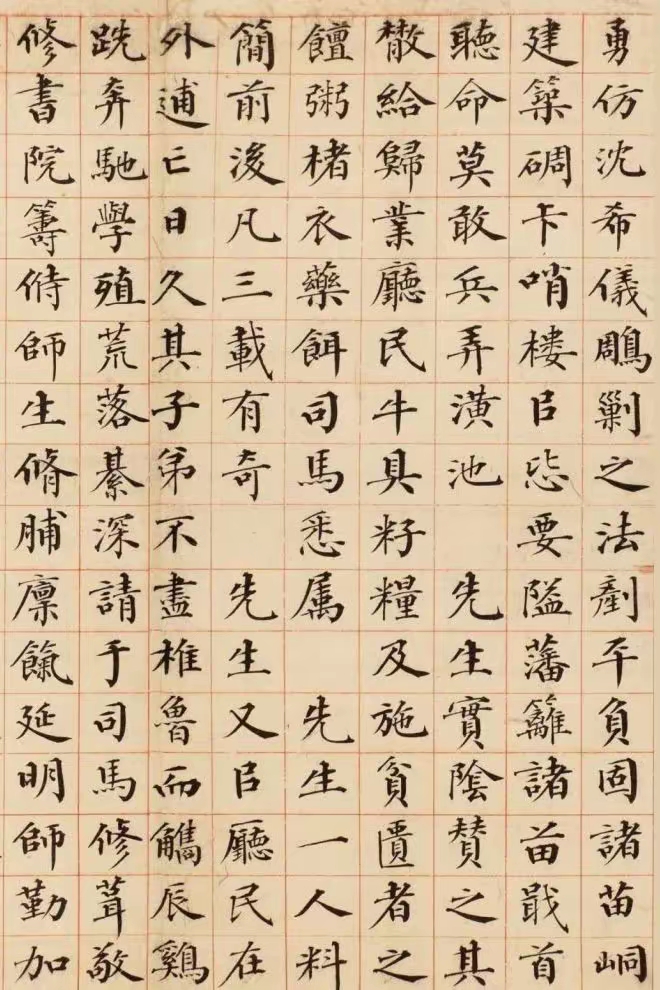 勇仿沈希儀鵰剿之法剷平負固諸苗峒
建築碉卡哨楼㠯毖要隘藩籬諸苗戢首
聽命莫敢兵弄潢池 先生實陰賛之其
散給歸業廳民牛具籽糧及施貧匱者之
饘粥楮衣藥餌司馬悉属 先生一人料
簡前後凡三載有奇 先生又㠯廳民在
外逋亡日久其子弟不盡椎魯而觿辰鷄
跣奔馳學殖荒落綦深請于司馬修葺敬
修書院籌偫師生脩脯廪餼延明師勤加